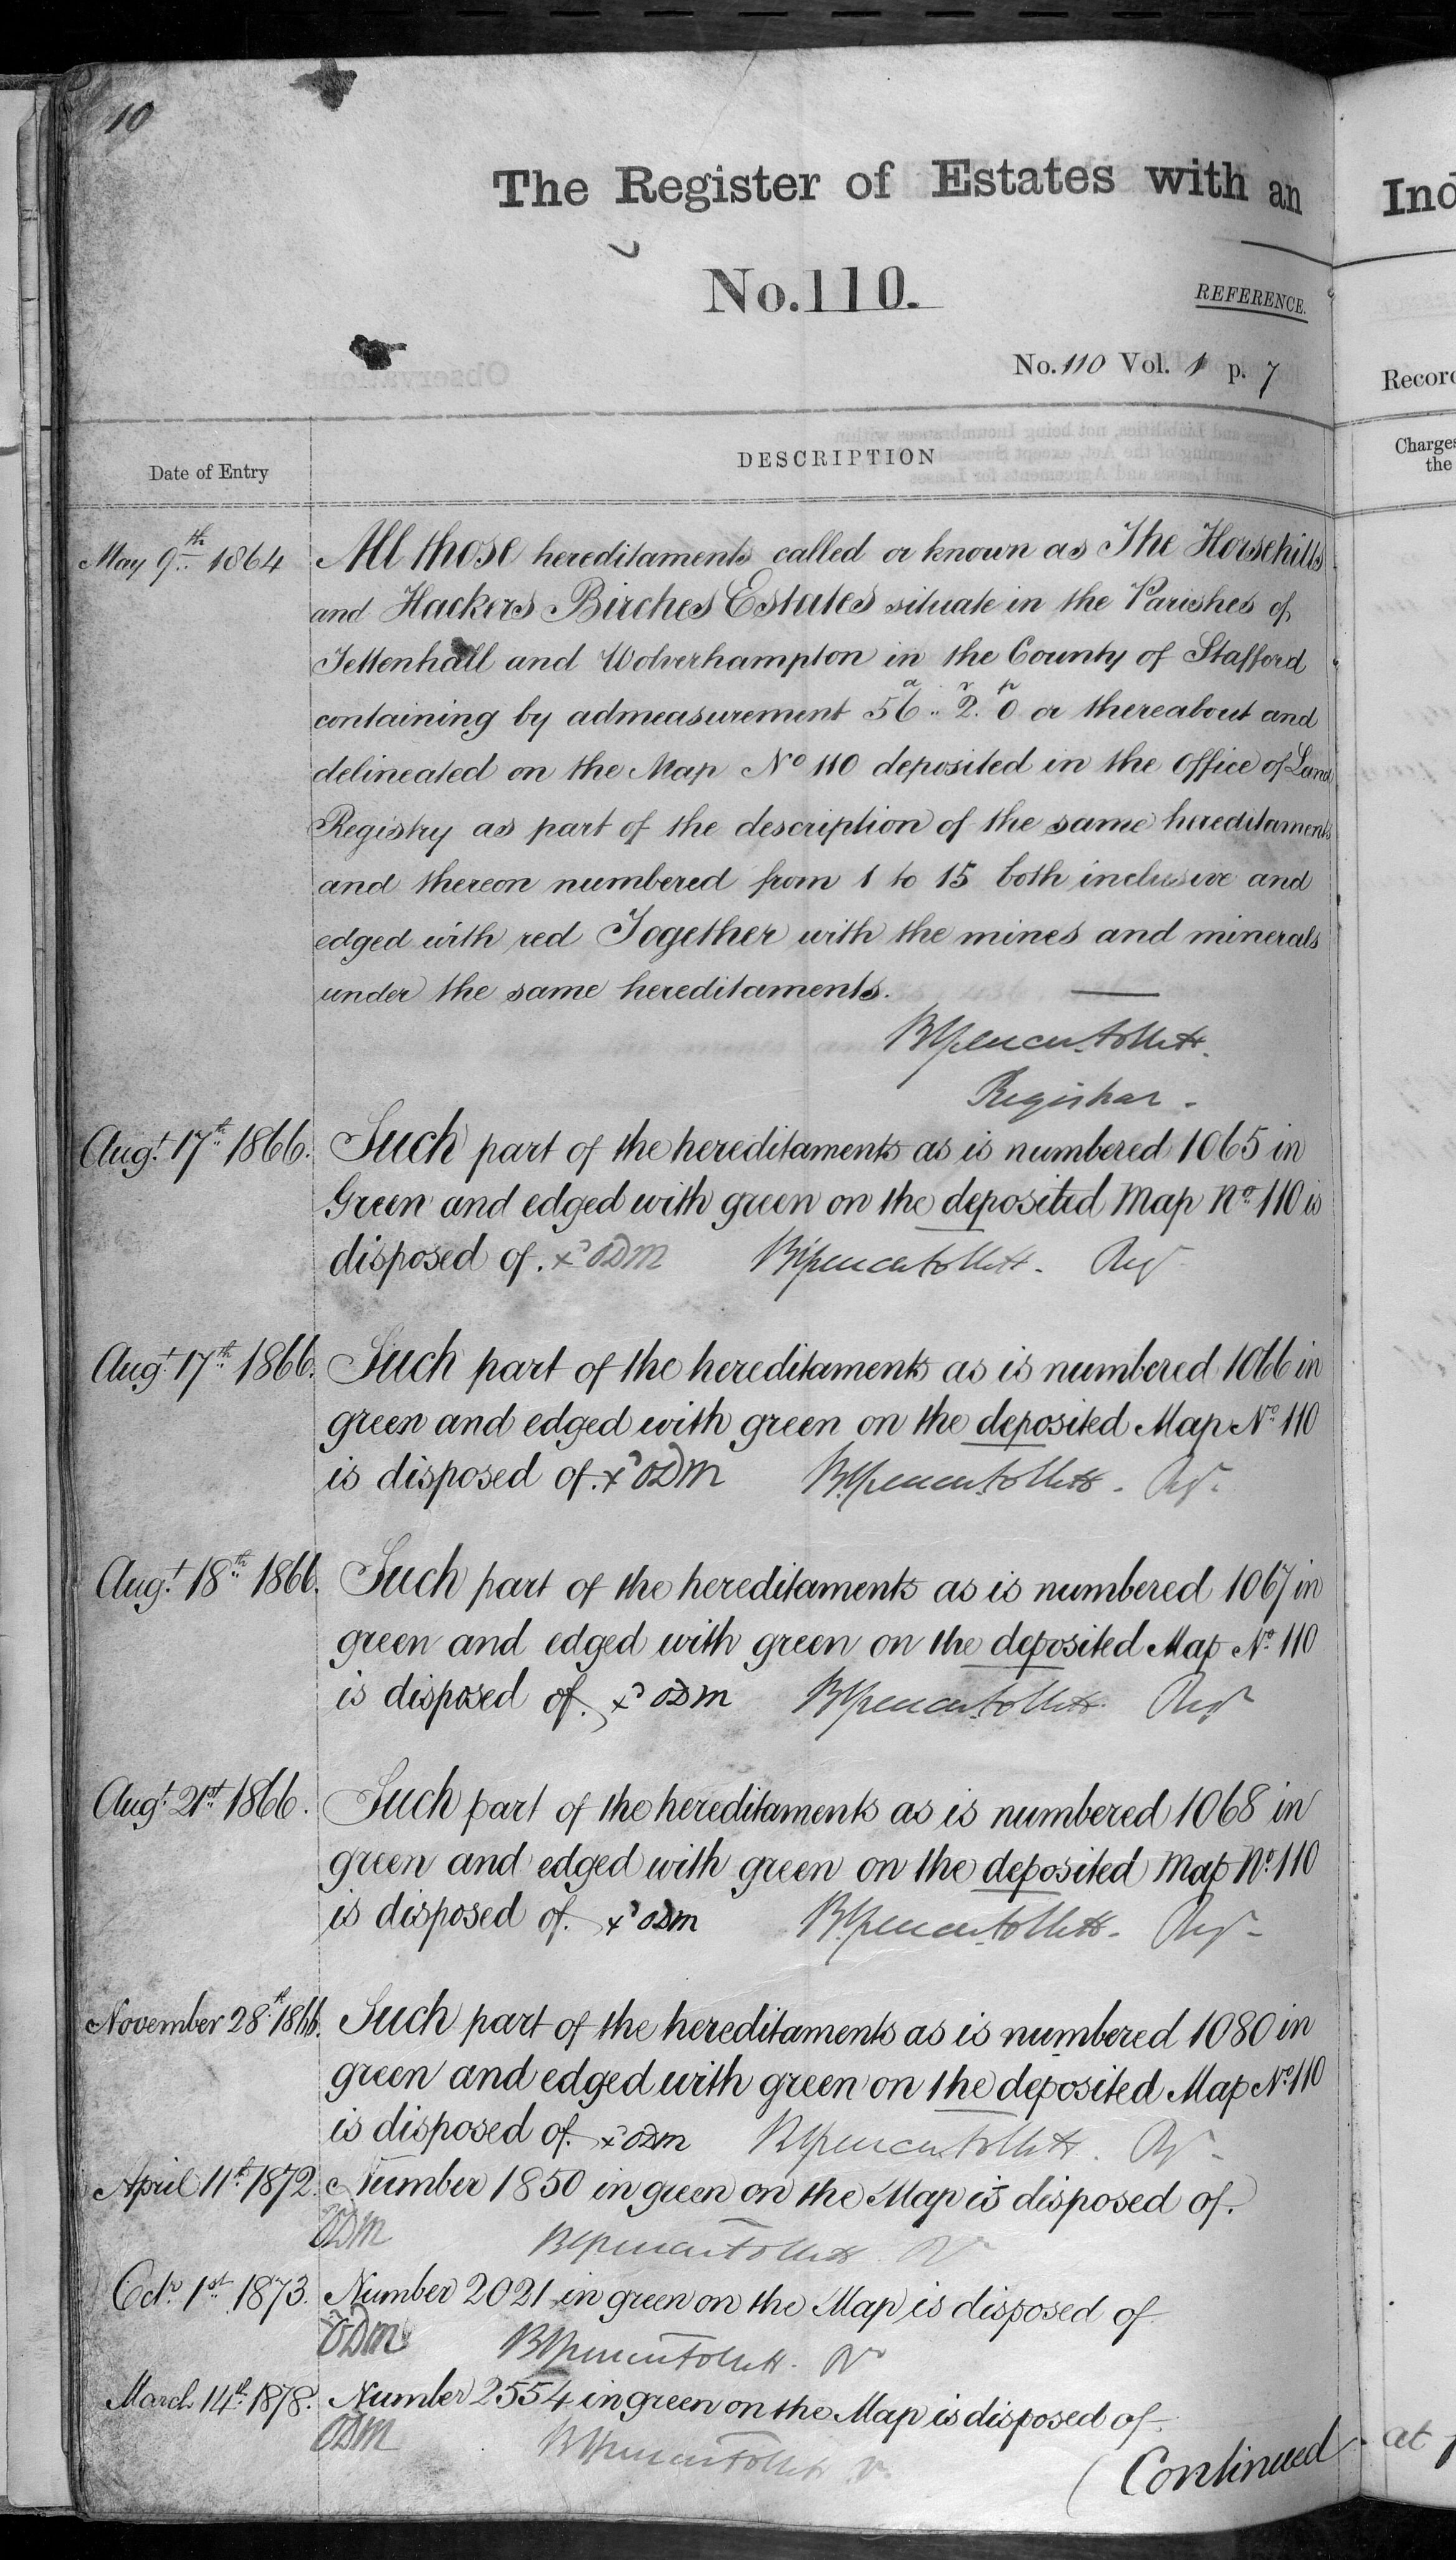 10
The Register of Estates with an
No. 110.
REFERENCE.
No. 110 Vol. 1 p. 7
Date of Entry
DESCRIPTION
May 9th 1864 All those hereditaments called or known as The Horsehills
and Hackers Birches Estates situate in the Parishes of
Tettenhall and Wolverhampton in the County of Stafford
containing by admeasurement 56a .. 2r. 0p or thereabout and
delineated on the Map No 110 deposited in the Office of Land
Registry as part of the description of the same hereditaments
and thereon numbered from 1 to 15 both inclusive and
edged with red Together with the mines and minerals
under the same hereditaments.
Registrar.
Augt. 17th 1866. Such part of the hereditaments as is numbered 1065 in
Green and edged with green on the deposited Map No. 110 is
disposed of. x ODM Regr
Augt. 17th 1866. Such part of the hereditaments as is numbered 1066 in
green and edged with green on the deposited Map No. 110
is disposed of. x ODM Regr.
Augt. 18th 1866. Such part of the hereditaments as is numbered 1067 in
green and edged with green on the deposited Map No. 110
is disposed of. x ODM Regr
Augt. 21st 1866. Such part of the hereditaments as is numbered 1068 in
green and edged with green on the deposited Map No. 110
is disposed of. x ODM Regr.
November 28th 1866. Such part of the hereditaments as is numbered 1080 in
green and edged with green on the deposited Map No. 110
is disposed of. x ODM Rr.
April 11th 1872. Number 1850 in green on the Map is disposed of.
ODM
Octr. 1st 1873. Number 2021 in green on the Map is disposed of
ODM
March 14th 1878. Number 2554 in green on the Map is disposed of.
ODM
(Continued
Ind
Record
Charges
the
at